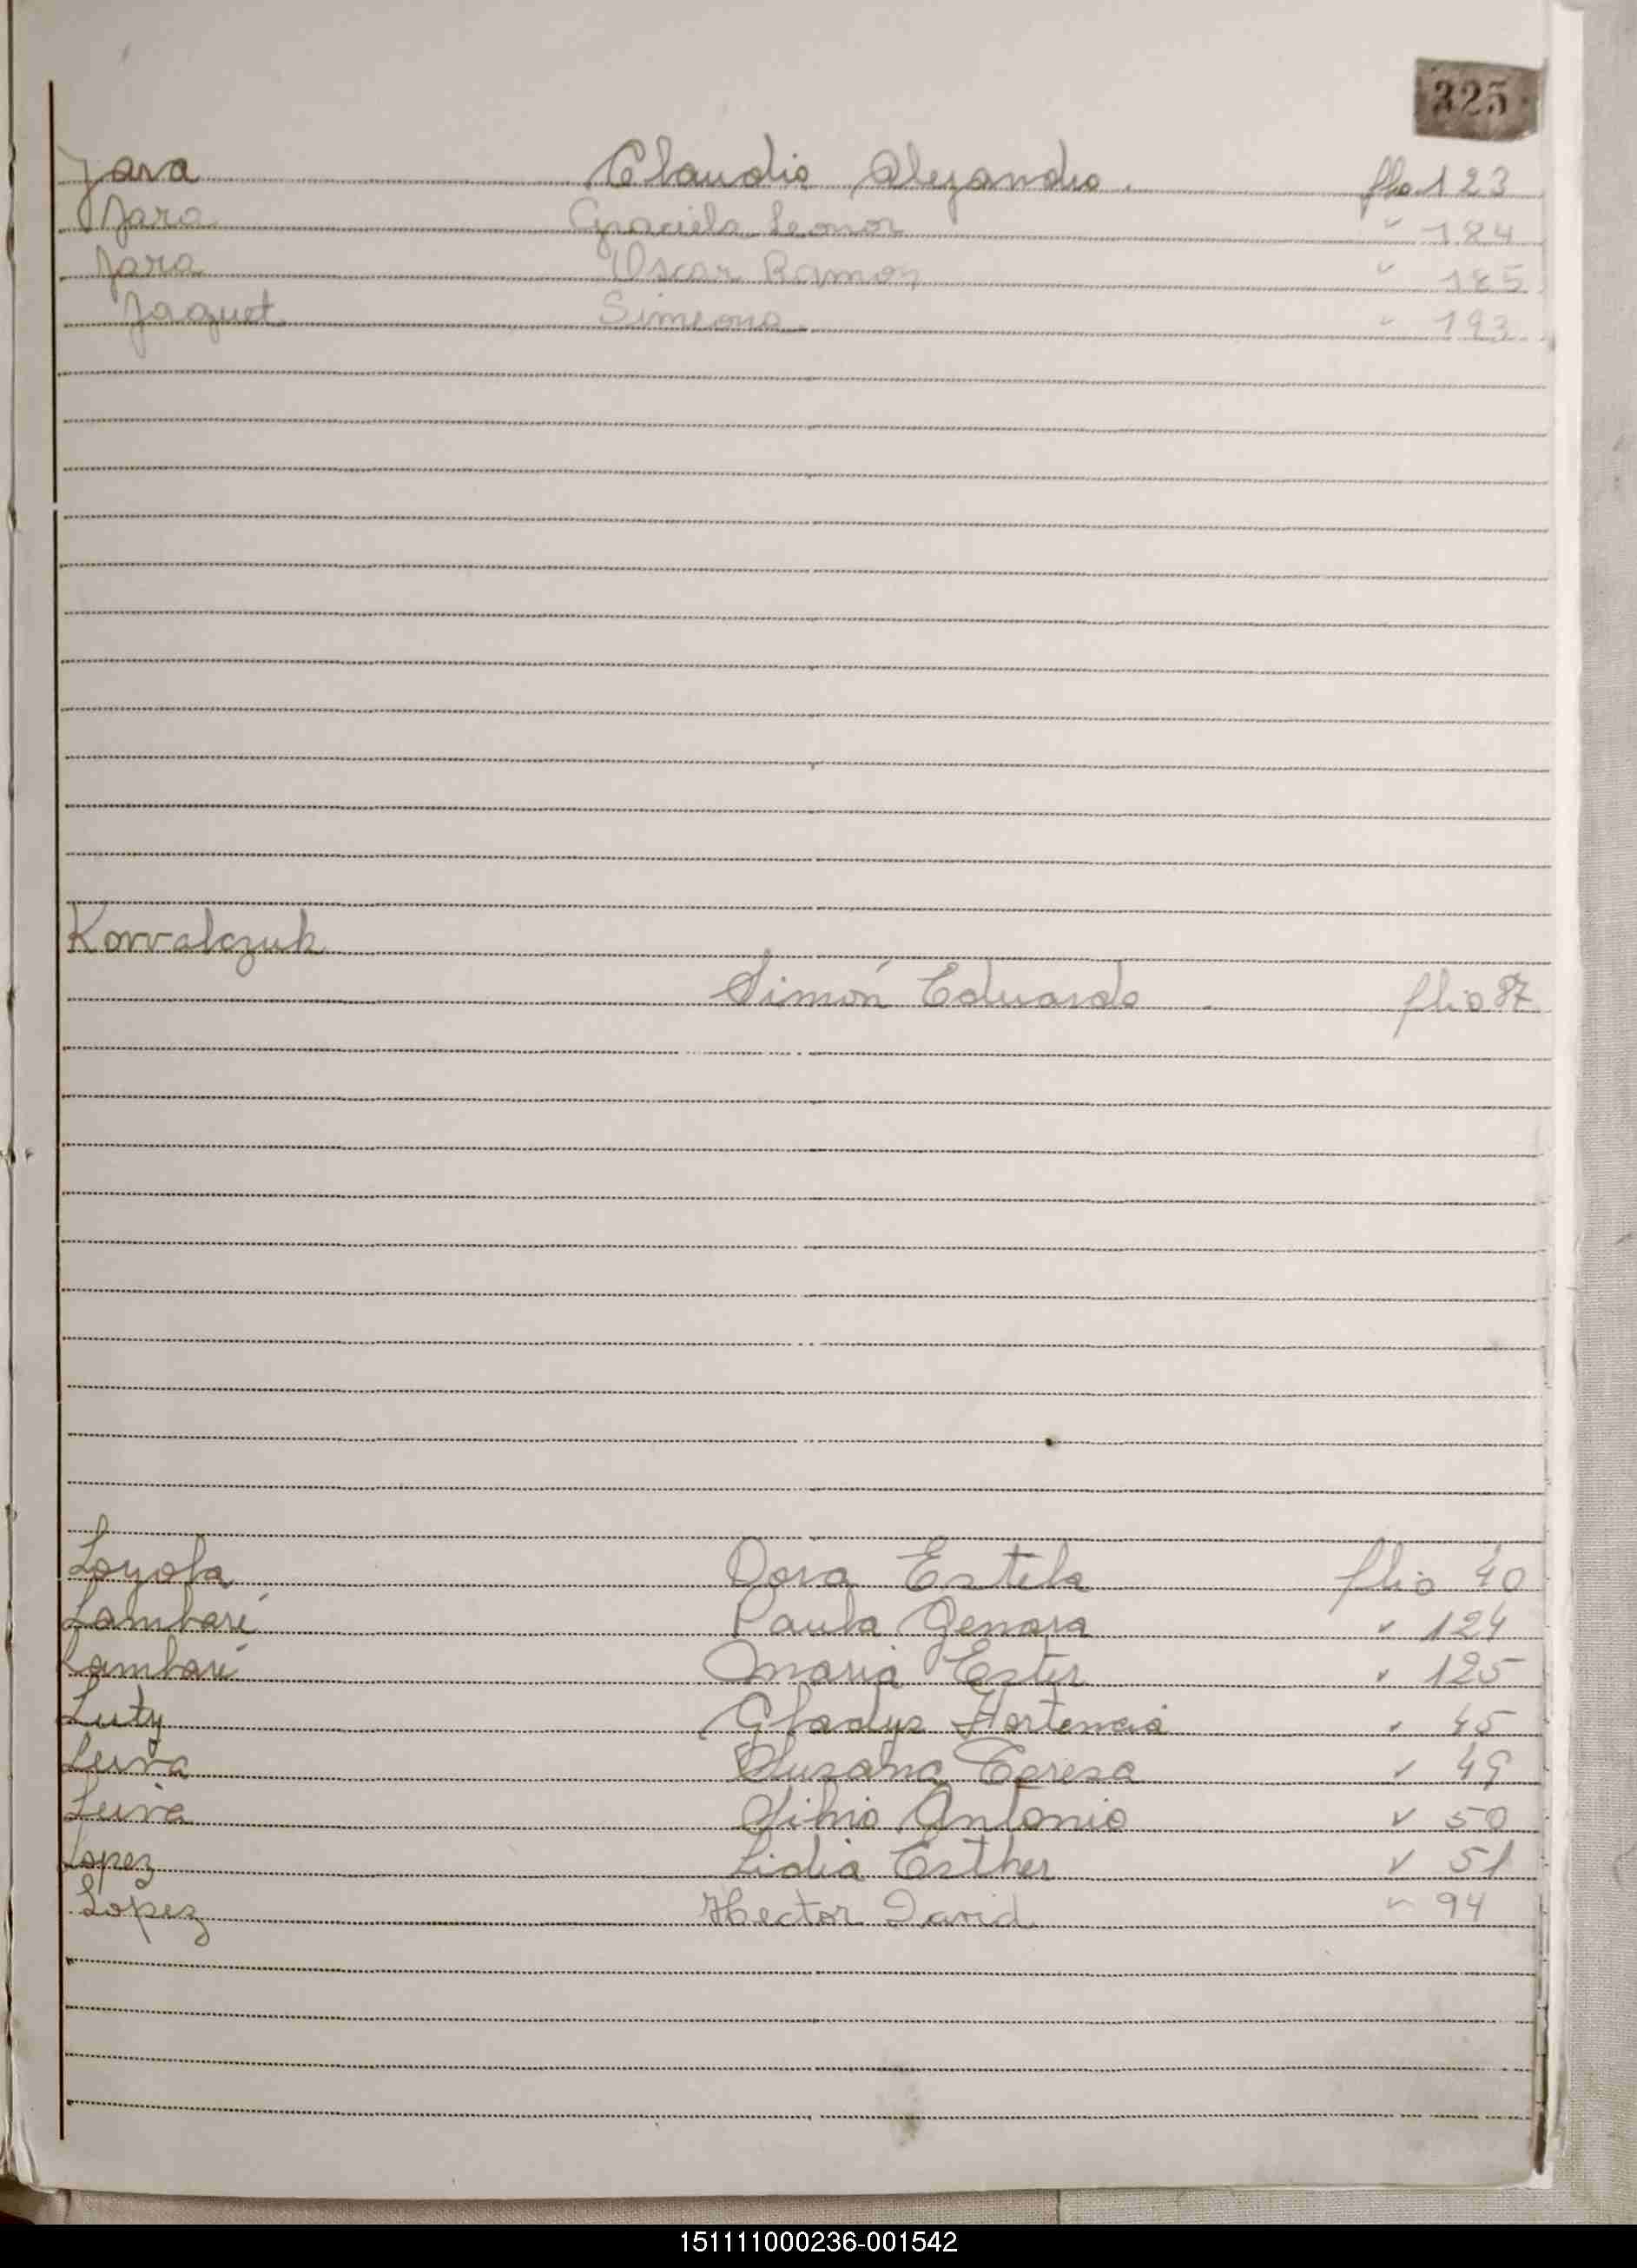 325
Jara Claudio Alejandro. flio 123
Jara Graciela Leonor " 184
Jara Oscar Ramon " 185
Jaquet Simeona " 193
Korvalczuk
Simón Eduardo flio 87
Loyola Dora Estela flio 40
Lambaré Paula Genara " 124
Lambaré Maria Ester " 125
Luty Gladys Hortencia " 45
Leiva Susana Teresa " 49
Leiva Silvio Antonio " 50
Lopez Lidia Esther " 51
Lopez Hector David " 94
151111000236-001542